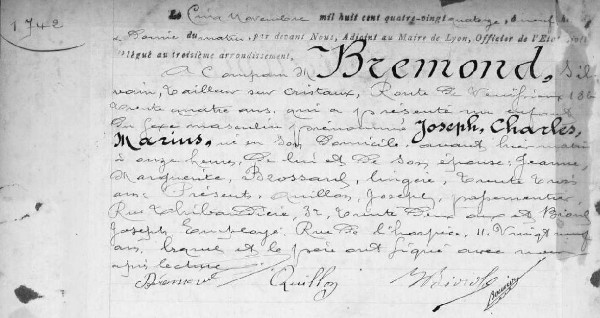 1742
Le Cinq Novembre mil huit cent quatre-vingt quatorze, à neuf heures
du matin, par devant Nous, Adjoint au Maire de Lyon, Officier de l'Etat civil
délégué au troisième arrondissement.
A Comparu M. Bremond, Sil-
vain, Tailleur sur cristaux, Route de Vénissieux 186
trente quatre ans, qui a présenté un enfant
du sexe masculin prénommé Joseph, Charles,
Marius, né en son domicile avant hier matin
à onze heures, De lui et de son épouse: Jeanne,
Marguerite, Brossard, lingère, trente trois
ans. Présents, Quillon, Joseph, passementier
Rue 32, trente deux ans et
Joseph Employé, Rue de l'hospice, 11. Vingt neuf
ans, lesquels et le père ont signé avec nous
après lecture
Bremond Quillon